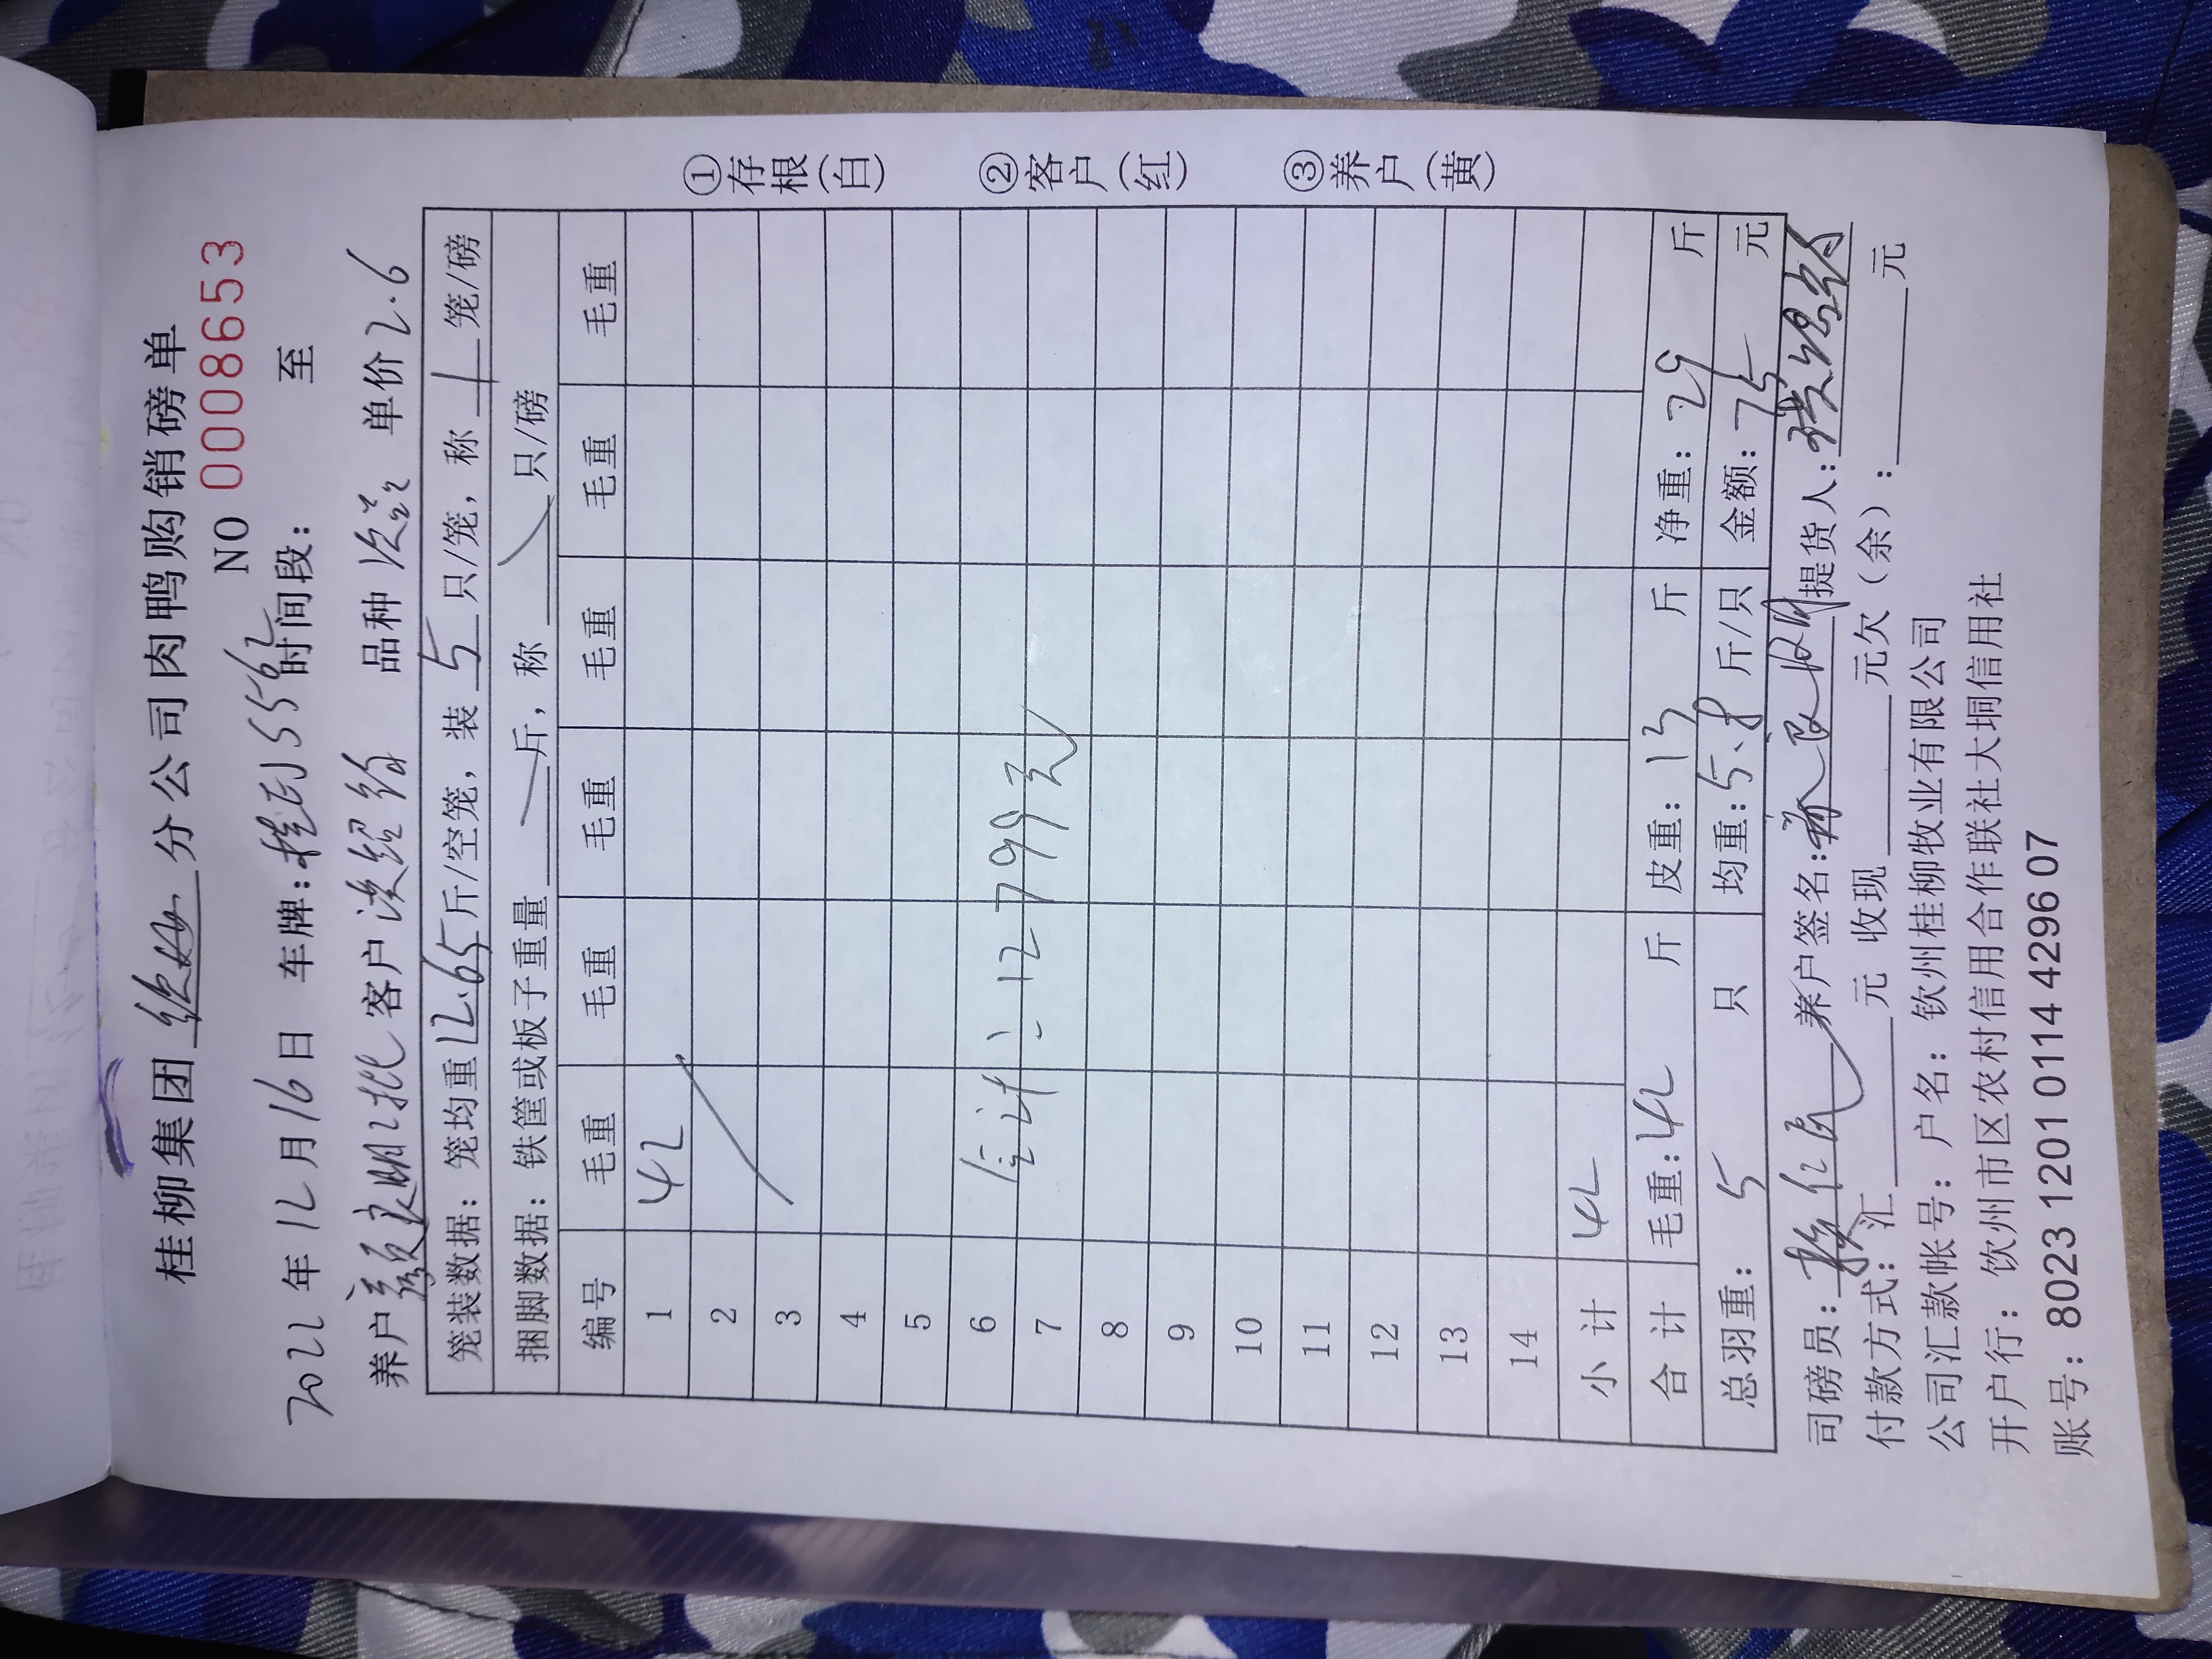 桂柳集团 分公司肉鸭购销磅单
NO 0008653
2022年12月16日 车牌：桂 5562 时间段： 至
养户 良明2批 客户 品种 单价2.6
笼装数据：笼均重12.65斤/空笼，装5只/笼，称1笼/磅
捆脚数据：铁筐或板子重量 斤，称 只/磅
编号 毛重 毛重 毛重 毛重 毛重 毛重
1 42
2
3
4
5
6
7
合计：12799元
8
9
10
11
12
13
14
小计 42
合计 毛重：42 斤 皮重：13 斤 净重：29 斤
总羽重：5 只 均重：5.8斤/只 金额：75 元
司磅员： 养户签名： 提货人：
付款方式：汇 元 收现 元欠（余）： 元
公司汇款帐号：户名：钦州桂柳牧业有限公司
开户行：钦州市区农村信用合作联社大垌信用社
账号：8023 1201 0114 4296 07
①存根（白） ②客户（红） ③养户（黄）